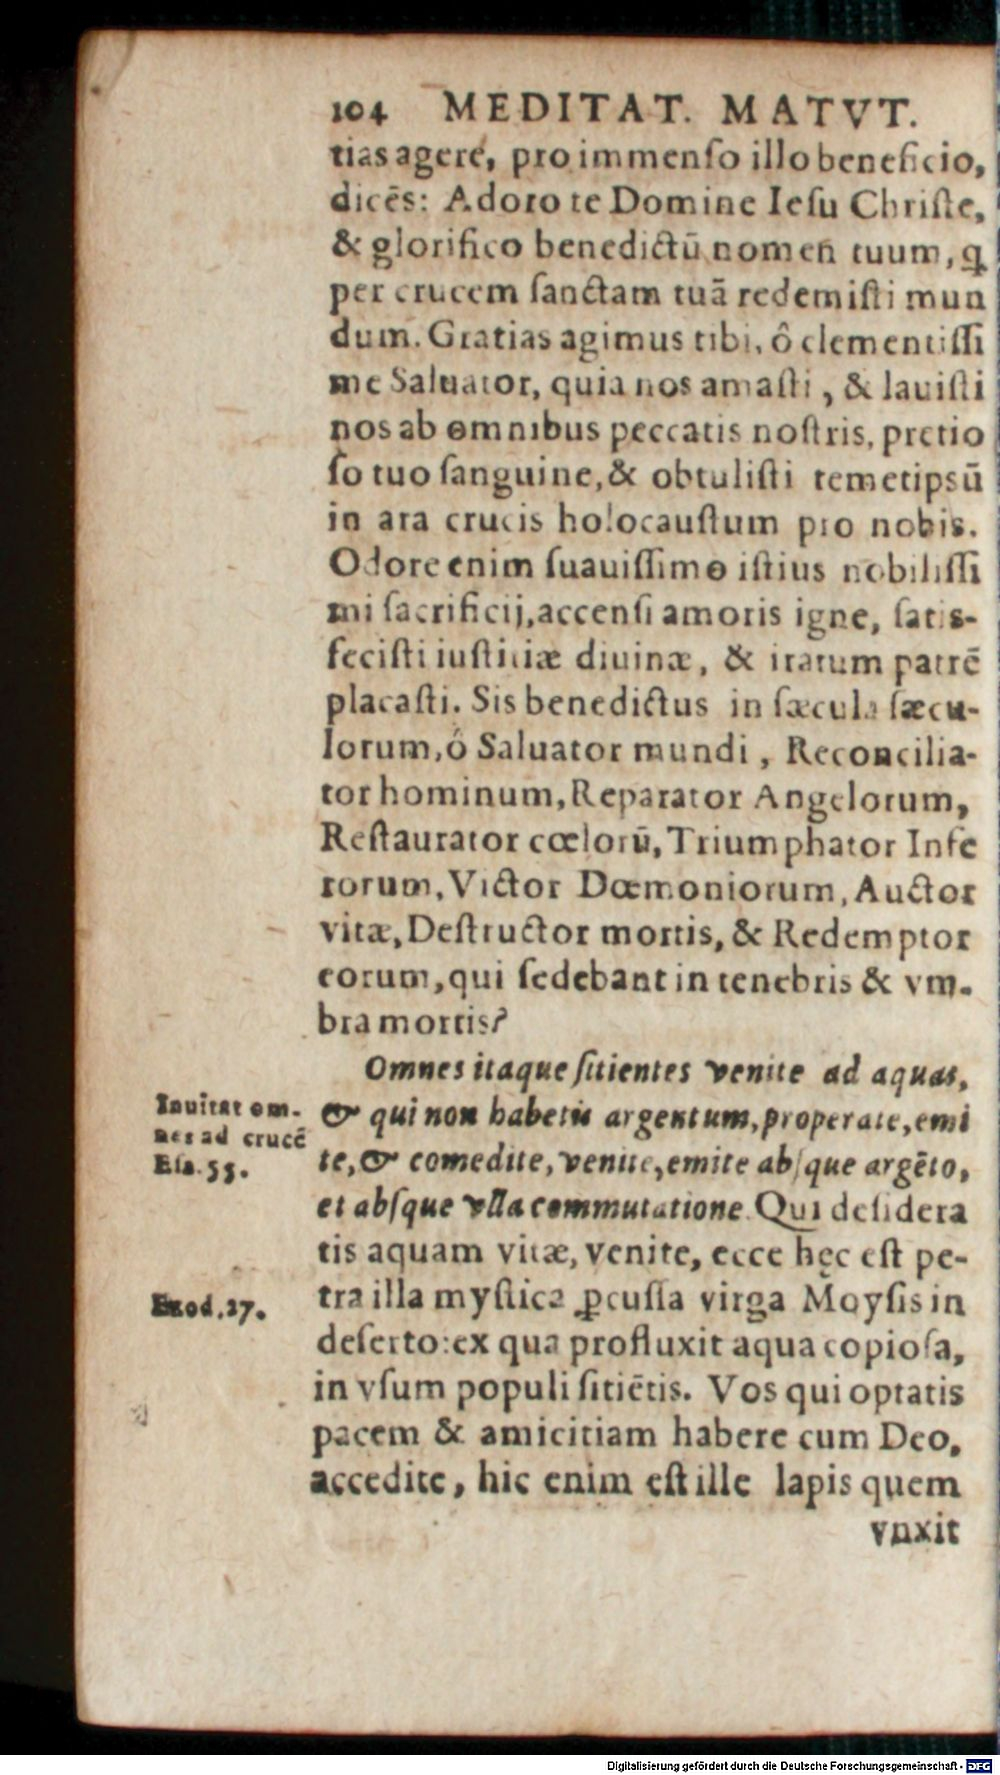 104 MEDITAT. MATVT.
tias agere, pro immenſo illo beneficio,
dicēs: Adoro te Domine Ieſu Chriſte,
& glorifico benedictū nomen tuum, ꝙ
per crucem ſanctam tuā redemiſti mun
dum. Gratias agimus tibi, ô clementiſſi
me Saluator, quia nos amaſti, & lauiſti
nos ab omnibus peccatis noſtris, pretio
ſo tuo ſanguine, & obtuliſti temetipsū
in ara crucis holocauſtum pro nobis.
Odore enim ſuauiſſimo iſtius nobiliſſi
mi ſacrificij, accenſi amoris igne, ſatis-
feciſti iuſtitiæ diuinæ, & iratum patrē
placaſti. Sis benedictus in ſæcula ſæcu-
lorum, ó Saluator mundi, Reconcilia-
tor hominum, Reparator Angelorum,
Reſtaurator cœlorū, Triumphator Infe
rorum, Victor Dœmoniorum, Auctor
vitæ, Deſtructor mortis, & Redemptor
eorum, qui ſedebant in tenebris & vm-
bra mortis?
Omnes itaque ſitientes venite ad aquas,
& qui non habetis argentum, properate, emi
te, & comedite, venite, emite abſque argēto,
et abſque vlla commutatione. Qui deſidera
tis aquam vitæ, venite, ecce hęc eſt pe-
tra illa myſtica ꝑcuſſa virga Moyſis in
deſerto: ex qua profluxit aqua copioſa,
in vſum populi ſitiētis. Vos qui optatis
pacem & amicitiam habere cum Deo,
accedite, hic enim eſt ille lapis quem
vnxit
Inuitat om-
nes ad crucē
Eſa. 55.
Exod. 27.
Digitalisierung gefördert durch die Deutsche Forschungsgemeinschaft - DFG